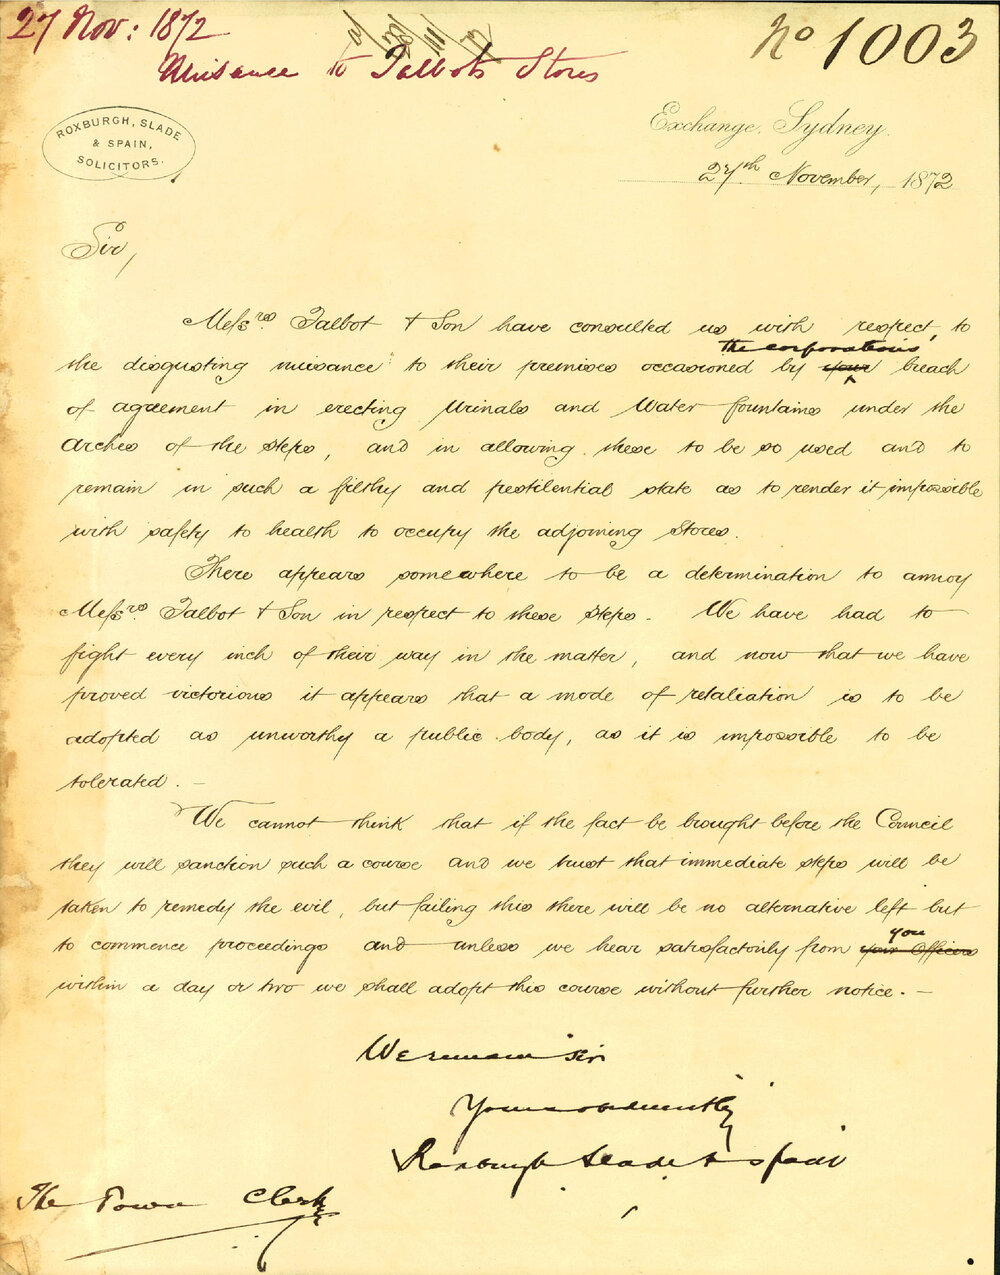 27 Nov: 1872
Nuisance to Talbots Stores
No 1003
ROXBURGH, SLADE
& SPAIN,
SOLICITORS.
Exchange, Sydney.
27th November, 1872
Sir,
Messres. Talbot & Son have consulted us with respect to
the corporations'
the disgusting nuisance to their premises occasioned by your breach
of agreement in erecting Urinals and Water fountains under the
Arches of the steps, and in allowing these to be so used and to
remain in such a filthy and pestilential state as to render it impossible
with safety to health to occupy the adjoining Stores.
There appears somewhere to be a determination to annoy
Messres. Talbot & Son in respect to these steps. We have had to
fight every inch of their way in the matter, and now that we have
proved victorious it appears that a mode of retaliation is to be
adopted as unworthy a public body, as it is impossible to be
tolerated. —
We cannot think that if the fact be brought before the Council
they will sanction such a course and we trust that immediate steps will be
taken to remedy the evil, but failing this there will be no alternative left but
you
to commence proceedings and unless we hear satisfactorily from your Officers
within a day or two we shall adopt this course without further notice. —
We remain Sir
Yours obediently
Roxburgh Slade & Spain
The Town Clerk